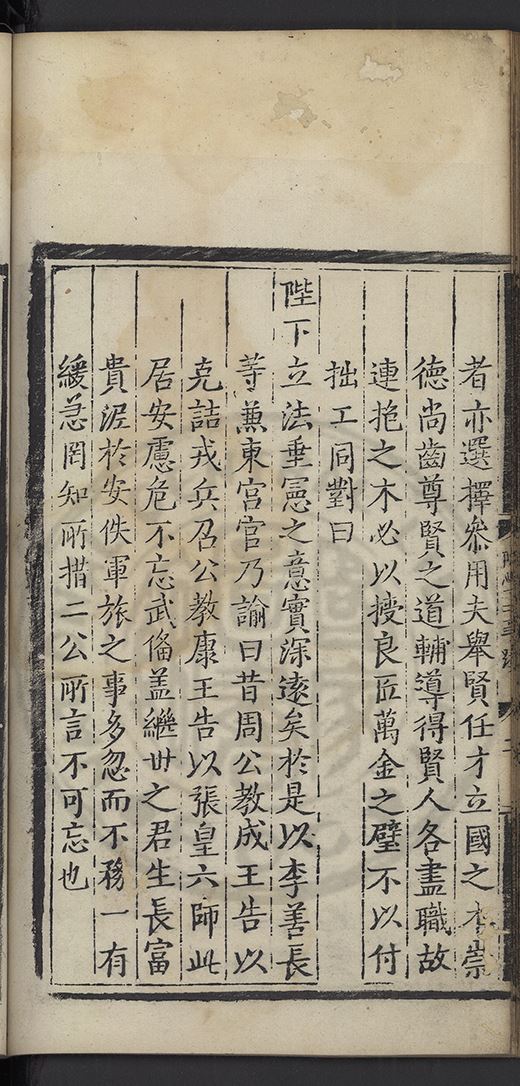 者亦選擇叅用夫舉賢任才立國之本崇
德尚齒尊賢之道輔導得賢人各盡職故
連抱之木必以授良匠萬金之璧不以付
拙工同對曰
陛下立法垂憲之意實深遠矣於是以李善長
等兼東宮官乃諭曰昔周公教成王告以
克詰戎兵召公教康王告以張皇六師此
居安慮危不忘武備盖繼世之君生長富
貴泥於安佚軍旅之事多忽而不務一有
緩急罔知所措二公所言不可忘也